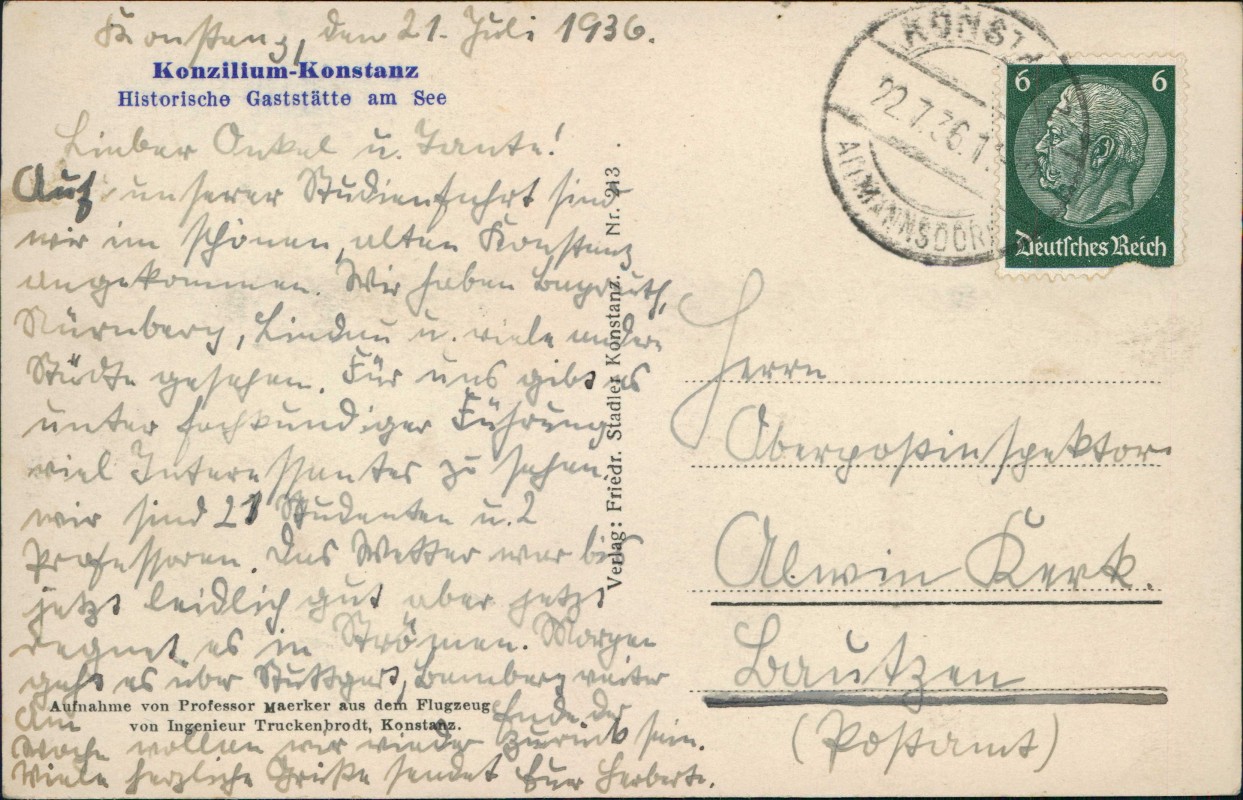 Konstanz, den 21. Juli 1936.
Konzilium-Konstanz
Historische Gaststätte am See
Lieber Onkel u. Tante!
Auf unserer Studienfahrt sind
wir im schönen, alten Konstanz
angekommen. Wir haben Bayreuth,
Nürnberg, Lindau u. viele andere
Städte gesehen. Für uns gibt es
unter fachkundiger Führung
viel Interessantes zu sehen.
wir sind 21 Studenten u. 2
Professoren. Das Wetter war bis
jetzt leidlich gut, aber jetzt
regnet es in Strömen. Morgen
geht es über Stuttgart, Bamberg weiter
Am Ende der
Woche wollen wir wieder zurück sein.
Viele herzliche Grüße sendet Euer Herbert.
Aufnahme von Professor Maerker aus dem Flugzeug
von Ingenieur Truckenbrodt, Konstanz.
Verlag: Friedr. Stadler Konstanz. Nr. 213
KONSTA
22.7.36.
ALLMANNSDORF
6 6
Deutsches Reich
Herrn
Oberpostinspektor
Alwin Kerk.
Bautzen
(Postamt)